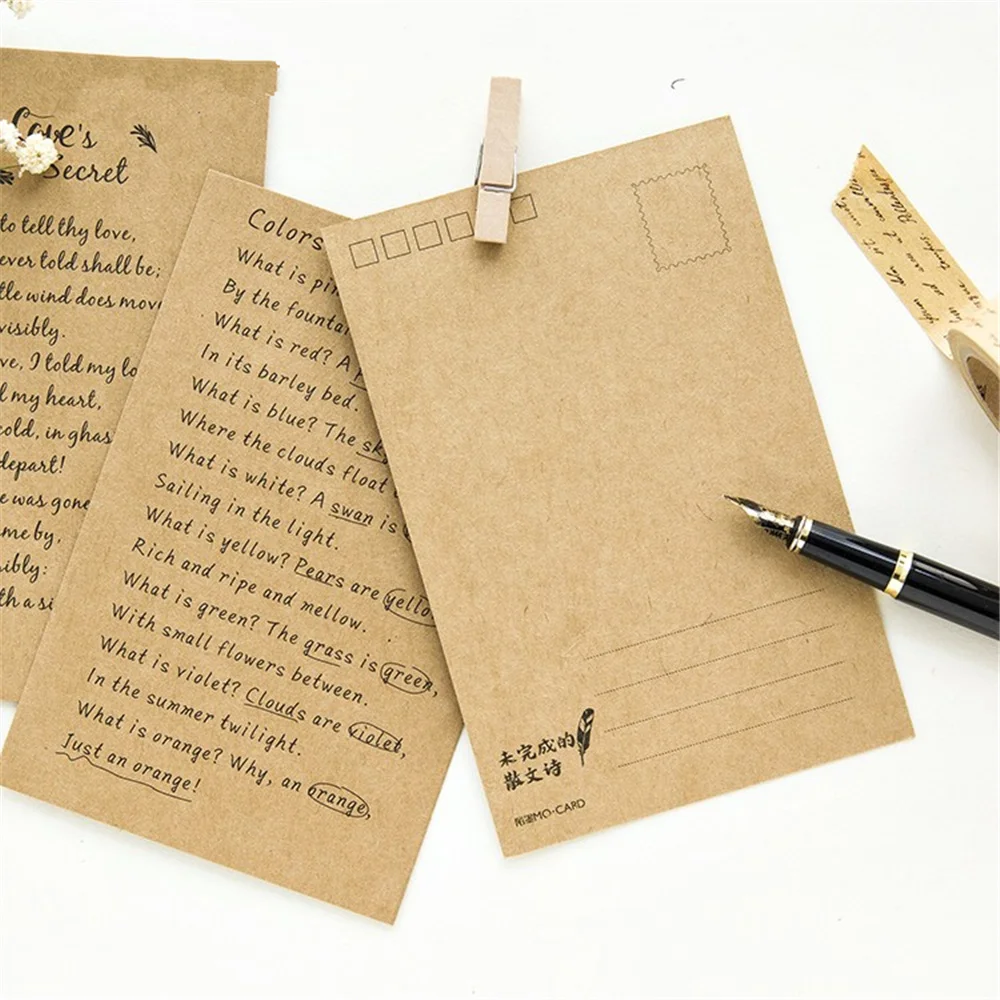 Love's
Secret
to tell thy love,
ever told shall be;
tle wind does move
visibly.
ve, I told my lo
d my heart,
cold, in ghas
depart!
e was gone
me by,
ibly:
th a si
Colors
What is pin
By the fountai
What is red? A
In its barley bed.
What is blue? The sky
Where the clouds float
What is white? A swan is
Sailing in the light.
What is yellow? Pears are yello
Rich and ripe and mellow.
What is green? The grass is green,
With small flowers between.
What is violet? Clouds are violet,
In the summer twilight.
What is orange? Why, an orange,
Just an orange!
未完成的
散文诗
陌墨MO·CARD